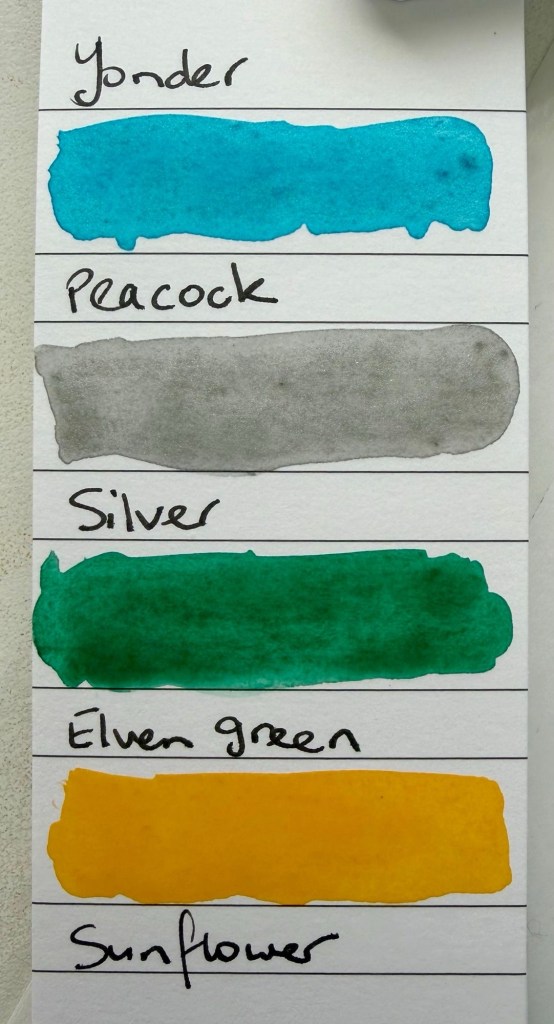 Yonder
Peacock
Silver
Elven green
Sunflower